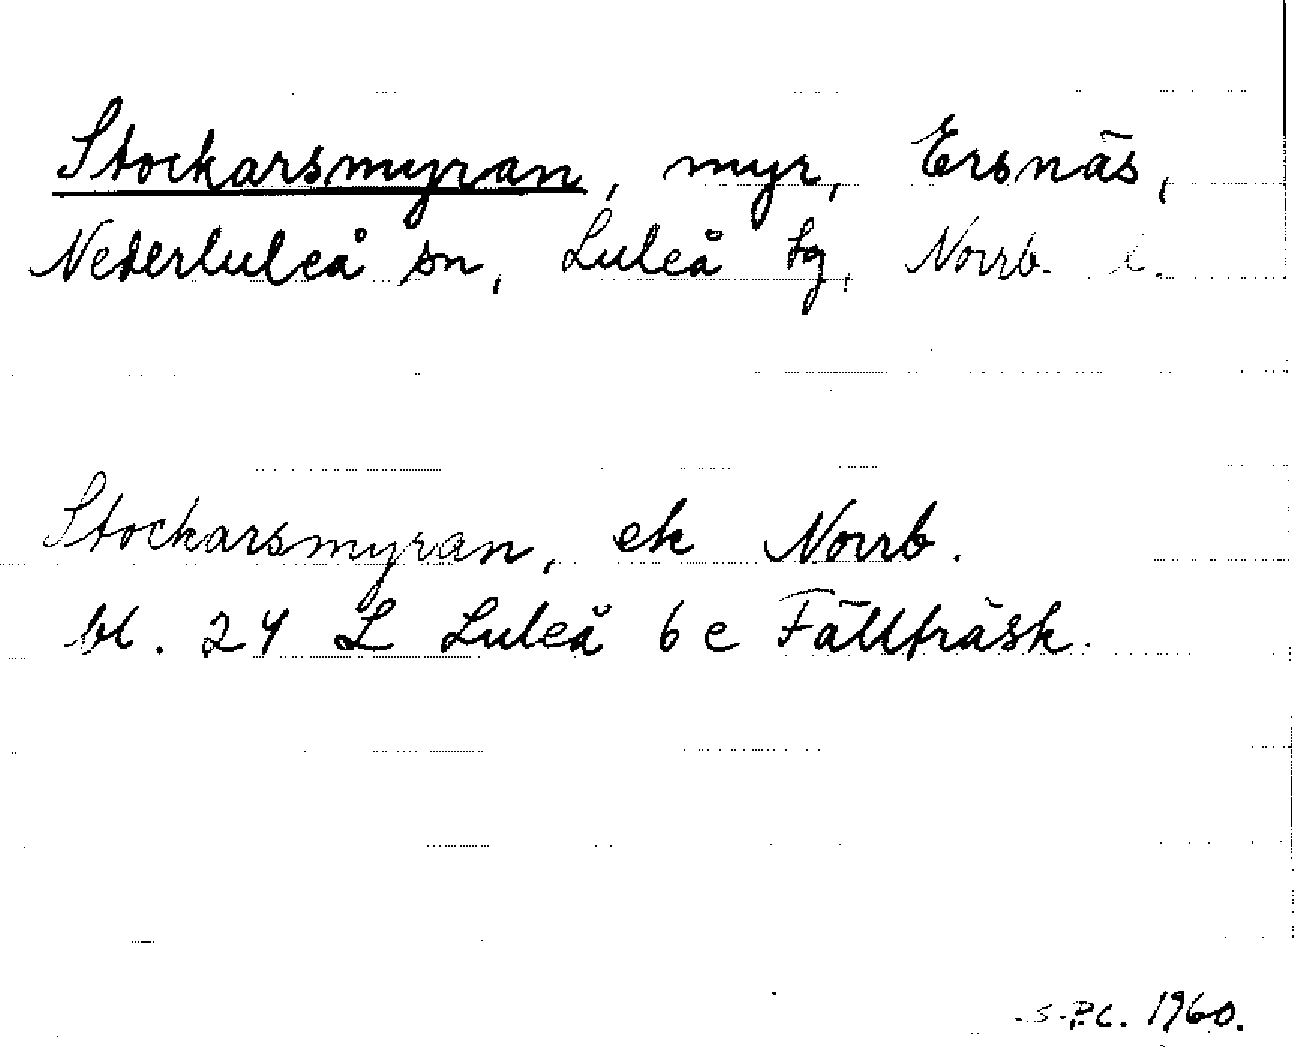 Stockarsmyran, myr, Ersnäs,
Nederluleå sn, Luleå tg, Norrb. l.
Stockarsmyran, ek Norrb.
bl. 24 L Luleå 6 c Fällträsk.
S.P.C. 1960.